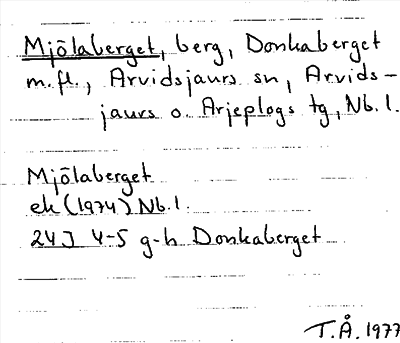 Mjölaberget, berg, Donkaberget
m.fl., Arvidsjaurs sn, Arvids-
jaurs o. Arjeplogs tg, Nb. l.
Mjölaberget
ek (1974) Nb. l.
24J 4-5 g-h Donkaberget
T.Å. 1977